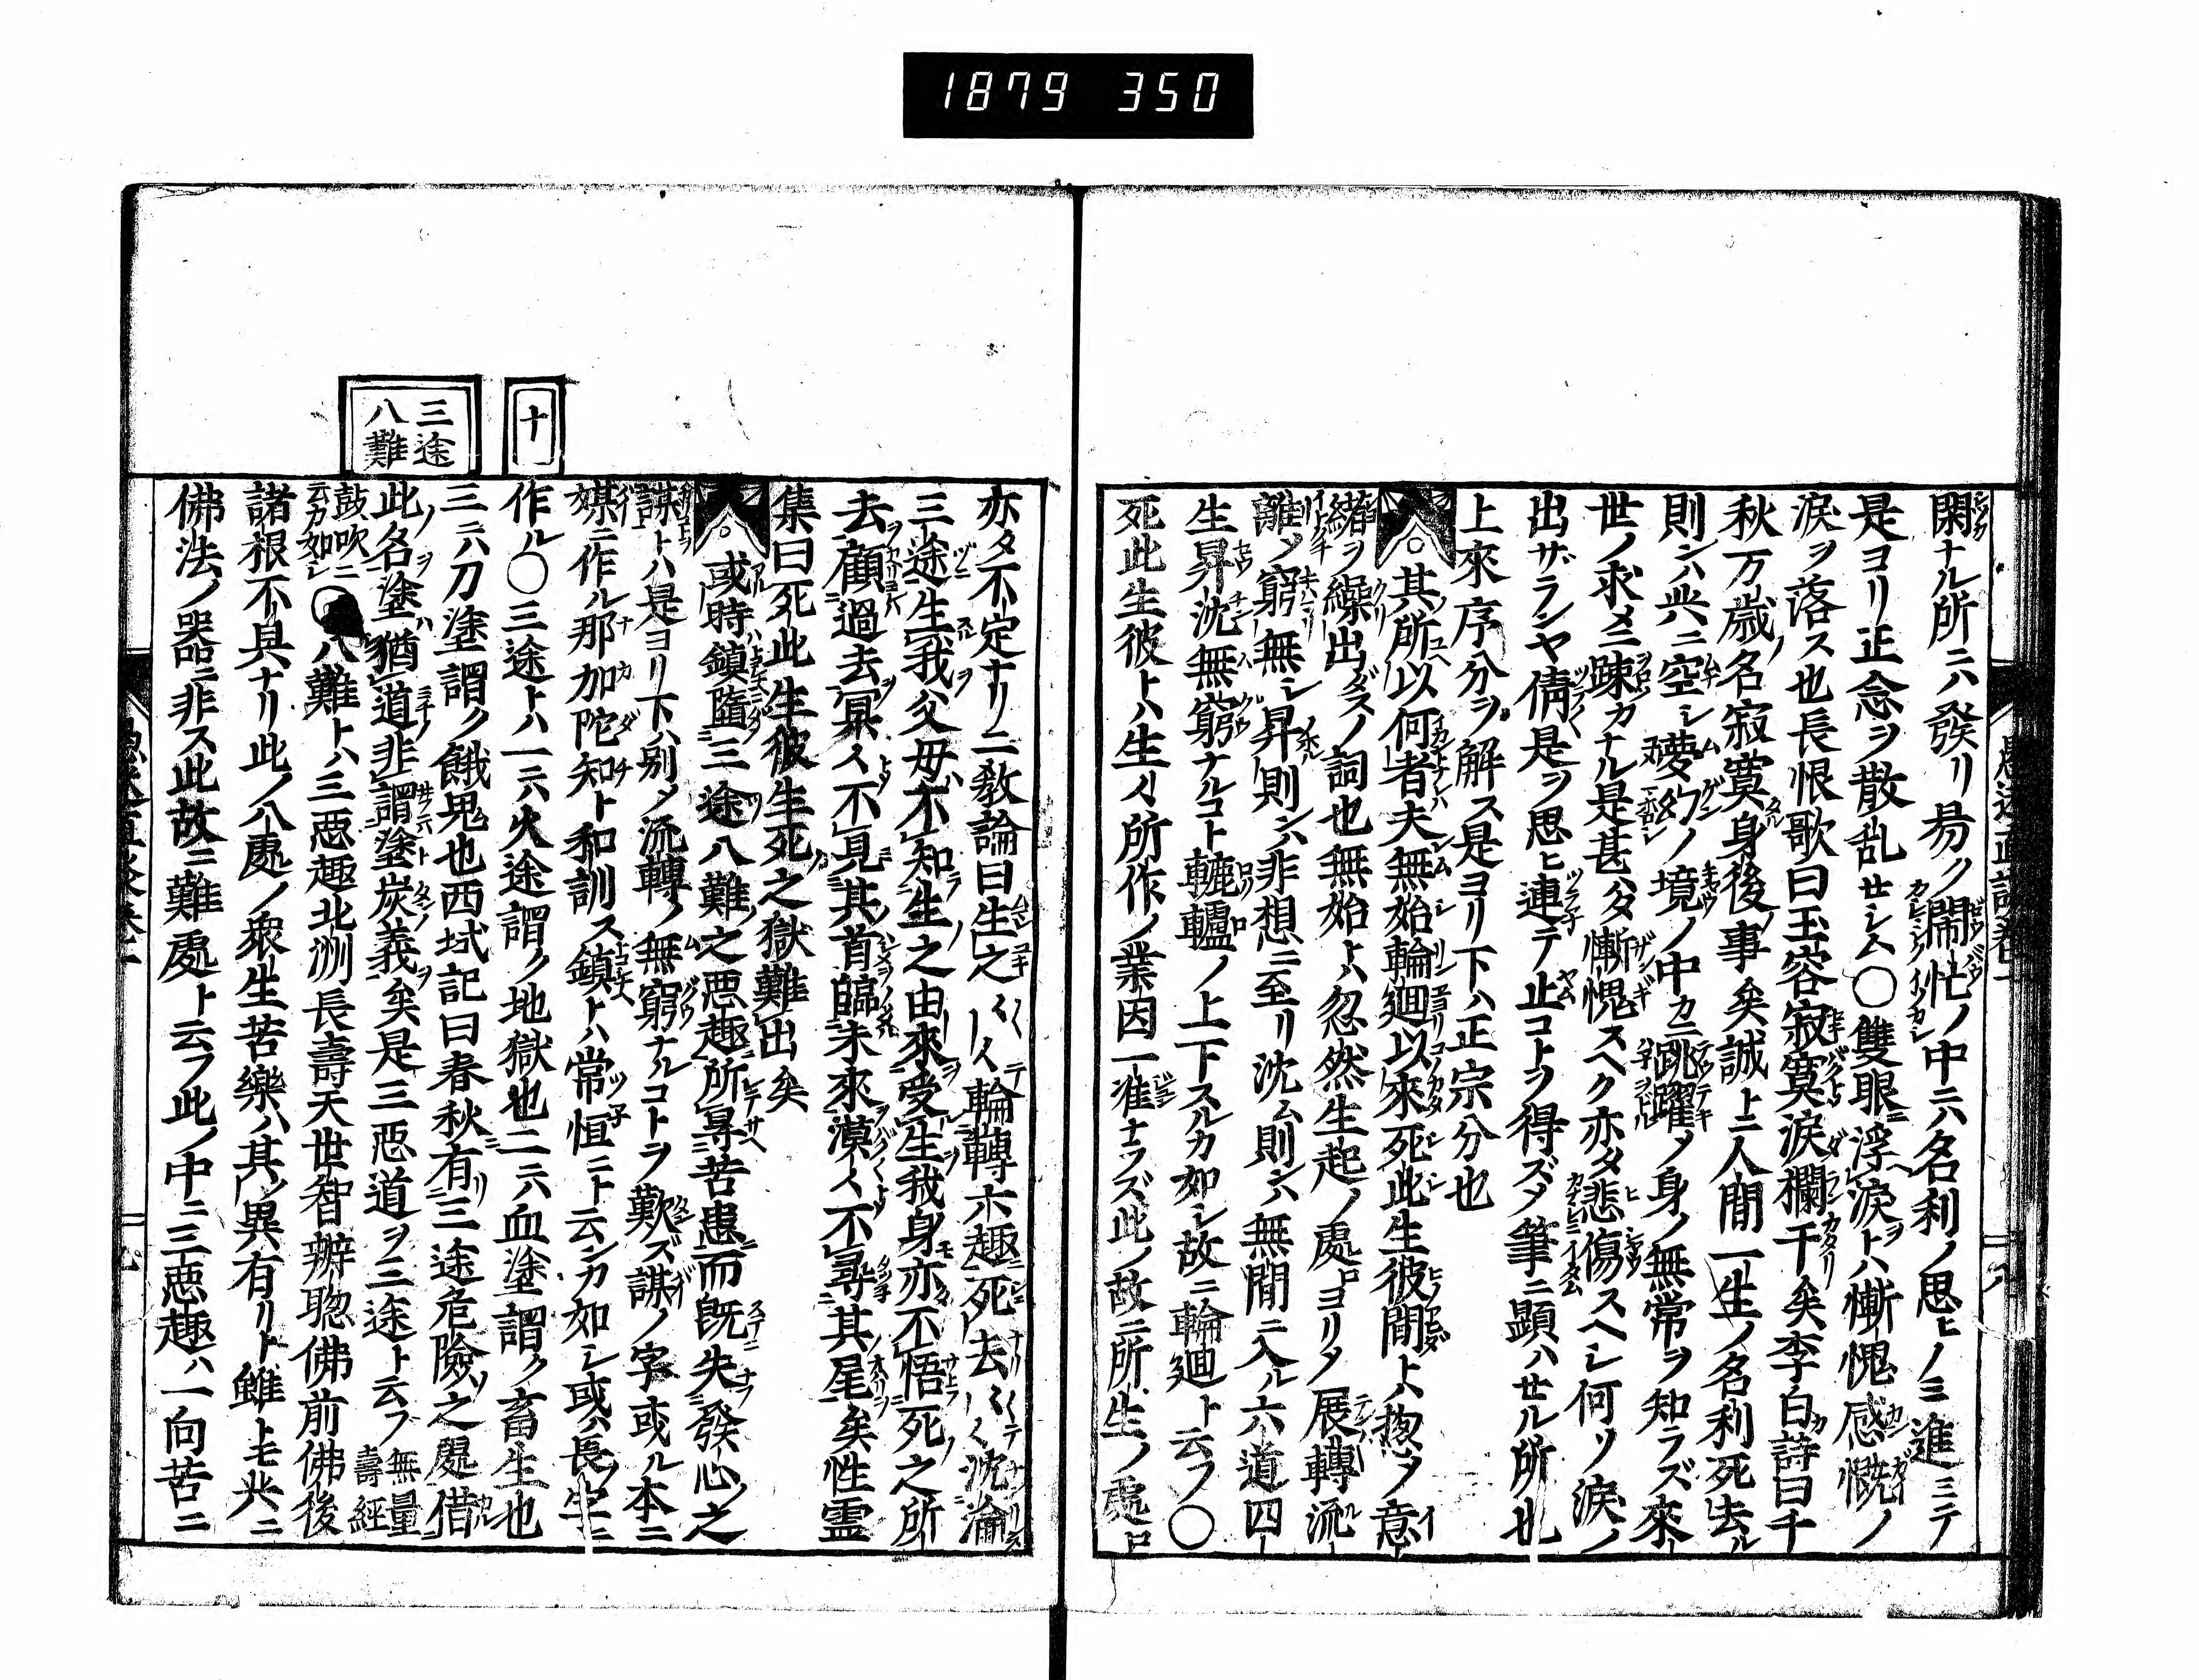 1879 350
閑ナル所ニハ發リ易ク閙忙ノ中ニハ名利ノ思ヒノミ進ミテ
是ヨリ正念ヲ散乱せシム〇雙眼浮涙トハ慚愧感慨ノ
涙ヲ落ス也長恨歌曰玉容寂寞涙欄干矣李白詩曰千
秋万歳名寂寞身後事矣誠ニ人間一生ノ名利死去ル
則ンハ共ニ空シ夢幻ノ境ノ中カニ跳躍ノ身ノ無常ヲ知ラズ來
世ノ求メニ踈カナル是甚ハダ慚愧スヘク亦タ悲傷スヘシ何ソ涙ノ
出ザランヤ倩是ヲ思ヒ連テ止コトヲ得ズノ筆ニ顕ハせル所也
上來序分ヲ解ス是ヨリ下ハ正宗分也
其所以何者夫無始輪廻以來死此生彼間トハ抱ノ意
緒ヲ繰出ダスノ詞也無始トハ忽然生起ノ處ヨリノ展轉流
離ノ窮無シ昇則ンハ非想ニ至リ沈ム則ンハ無間ニ入ル六道四
生昇沈無窮ナルコト轆轤ノ上下スルカ如シ故ニ輪廻ト云フ〇
死此生彼トハ生々所作ノ業因一准ナラズ此ノ故ニ所生ノ處
亦タ不定ナリ二教論曰生之輪轉六趣死去沈淪
三途生我父母不知生之由來受生我身亦不悟死之所
去顧過去冥々不見其首臨未來漠々不尋其尾矣性霊
集曰死此生彼生死之獄難出矣
或時鎮墮三途八難之悪趣所㝵苦患而既失發心之
謀トハ是ヨリ下ハ別ノ流轉ノ無窮ナルコトヲ歎ズ謀ノ字或ル本ニ
媒ニ作ル那加陀知ト和訓ス鎮トハ常恒ニト云ンカ如シ或ハ長ニ
作ル〇三途トハ一ニハ火途謂ク地獄也二ニハ血塗謂ク畜生也
三ニハ刀塗謂ク餓鬼也西域記曰春秋有三途危險之處借
此名塗猶道非謂塗炭義矣是三悪道ヲ三途ト云フ無量壽經
鼓吹ニ云カ如シ〇八難トハ三悪趣北洲長壽天世智辨聰佛前佛後
諸根不具ナリ此ノ八處ノ衆生苦樂ハ其ノ異有リト雖トモ共ニ
佛法ノ器ニ非ス此故ニ難處ト云フ此ノ中ニ三悪趣ハ一向苦ニ
十
三途
八難